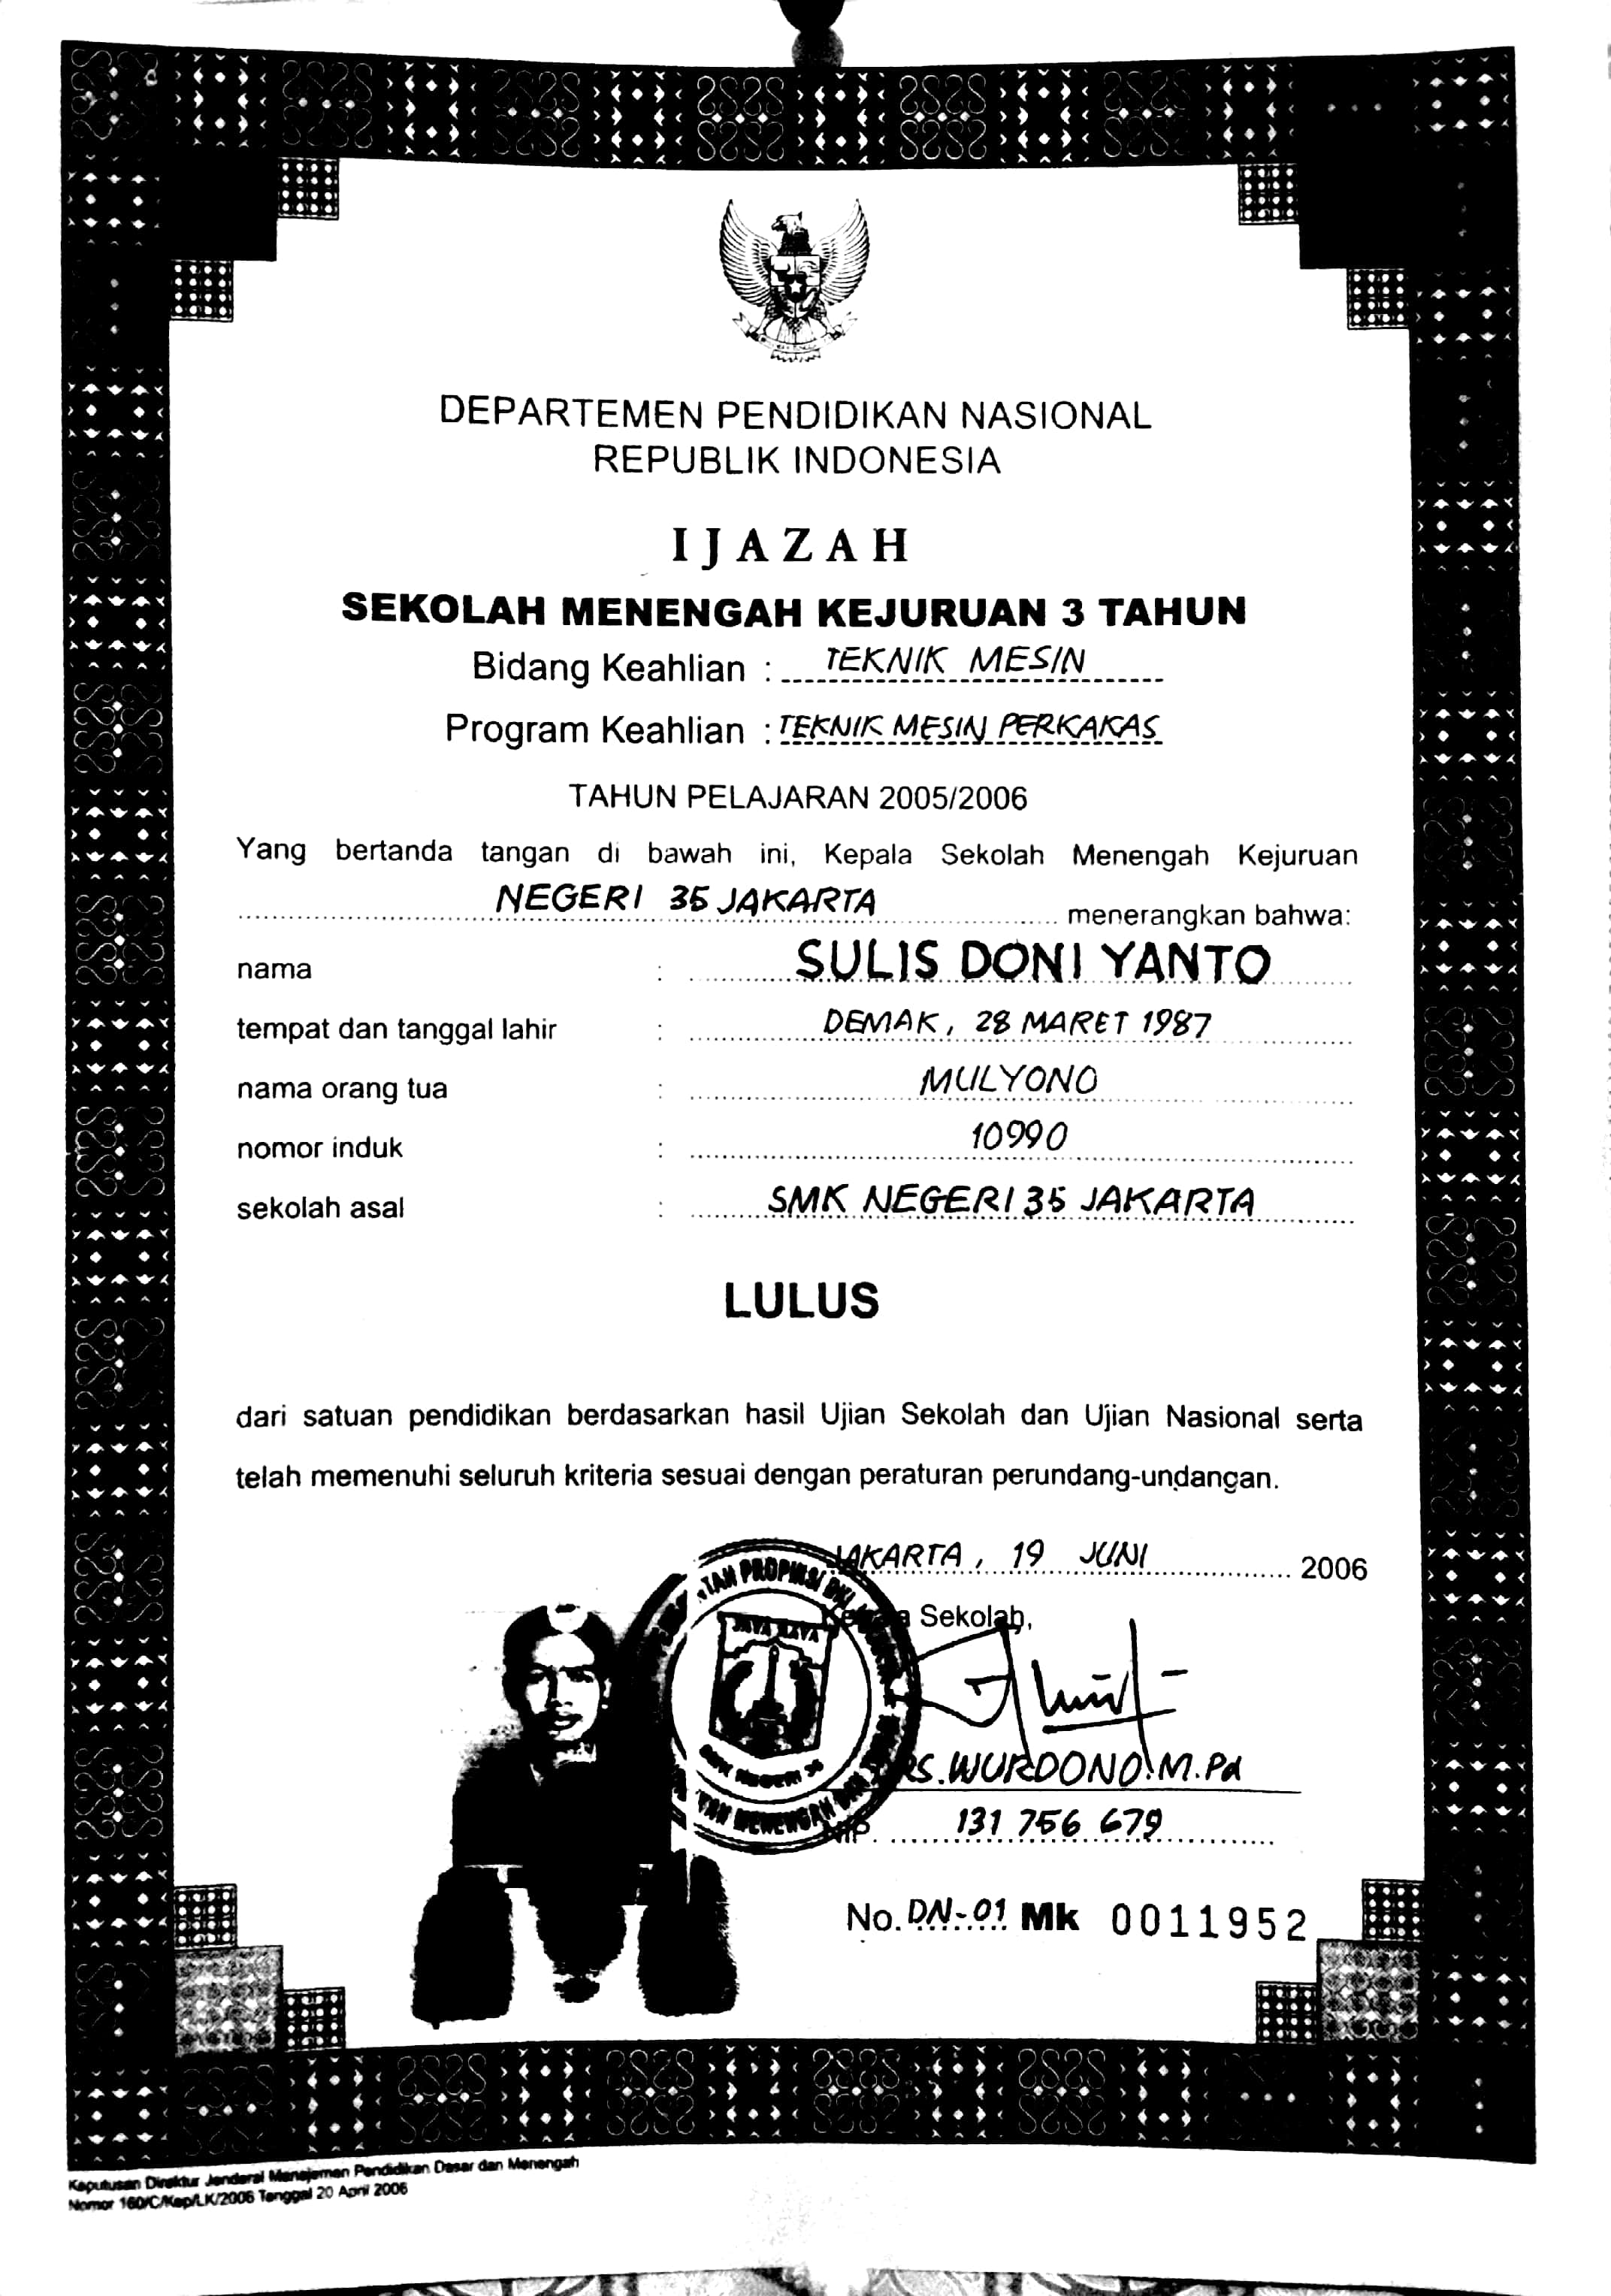 DEPARTEMEN PENDIDIKAN NASIONAL
REPUBLIK INDONESIA
IJAZAH
SEKOLAH MENENGAH KEJURUAN 3 TAHUN
Bidang Keahlian : TEKNIK MESIN
Program Keahlian : TEKNIK MESIN PERKAKAS
TAHUN PELAJARAN 2005/2006
Yang bertanda tangan di bawah ini, Kepala Sekolah Menengah Kejuruan
NEGERI 35 JAKARTA menerangkan bahwa:
nama : SULIS DONI YANTO
tempat dan tanggal lahir : DEMAK, 28 MARET 1987
nama orang tua : MULYONO
nomor induk : 10990
sekolah asal : SMK NEGERI 35 JAKARTA
LULUS
dari satuan pendidikan berdasarkan hasil Ujian Sekolah dan Ujian Nasional serta
telah memenuhi seluruh kriteria sesuai dengan peraturan perundang-undangan.
JAKARTA, 19 JUNI 2006
Kepala Sekolah,
PROPINSI DKI
JAYA RAYA
SMK NEGERI 35
MENENGAH DAN
RS. WURDONO M.Pd
NIP. 131 756 679
No. DN-01 Mk 0011952
Keputusan Direktur Jenderal Manajemen Pendidikan Dasar dan Menengah
Nomor 160/C/Kep/LK/2006 Tanggal 20 April 2006